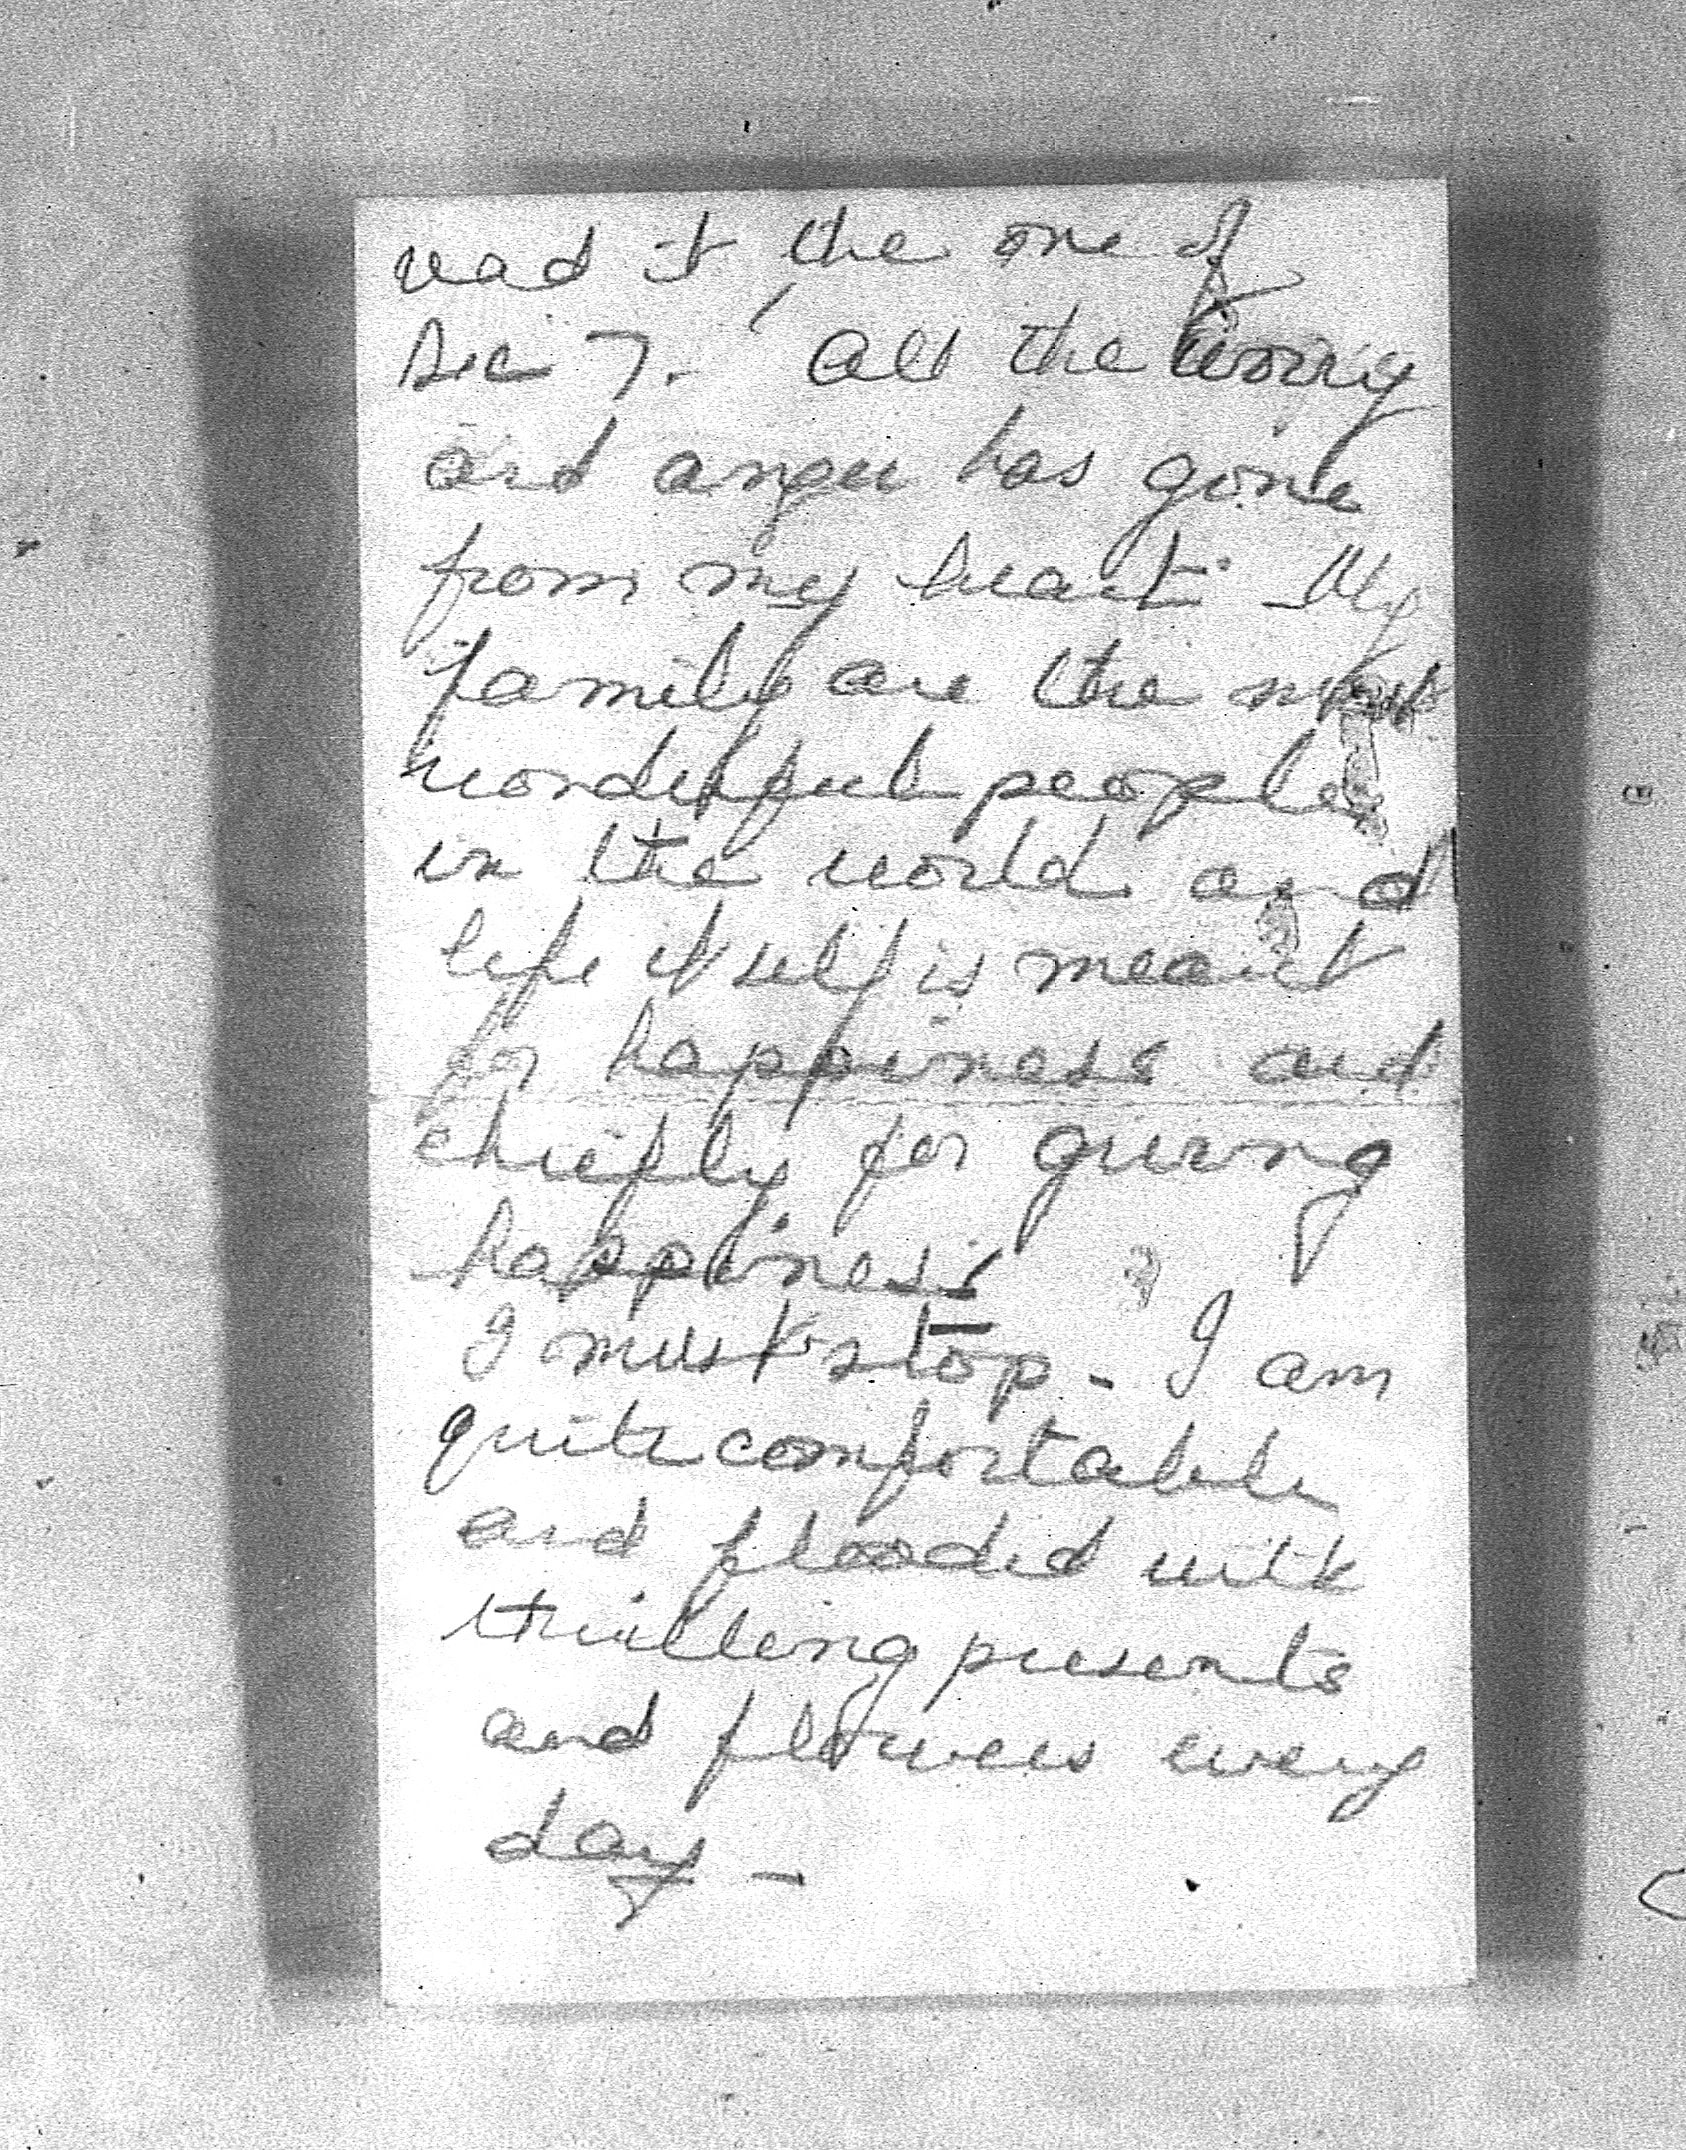 read it, the one of
Dec 7. All the worry
and anger has gone
from my heart. My
family are the most
wonderful people
in the world and
life itself is meant
for happiness and
chiefly for giving
happiness
I must stop - I am
quite comfortable
and flooded with
thrilling presents
and flowers every
day -